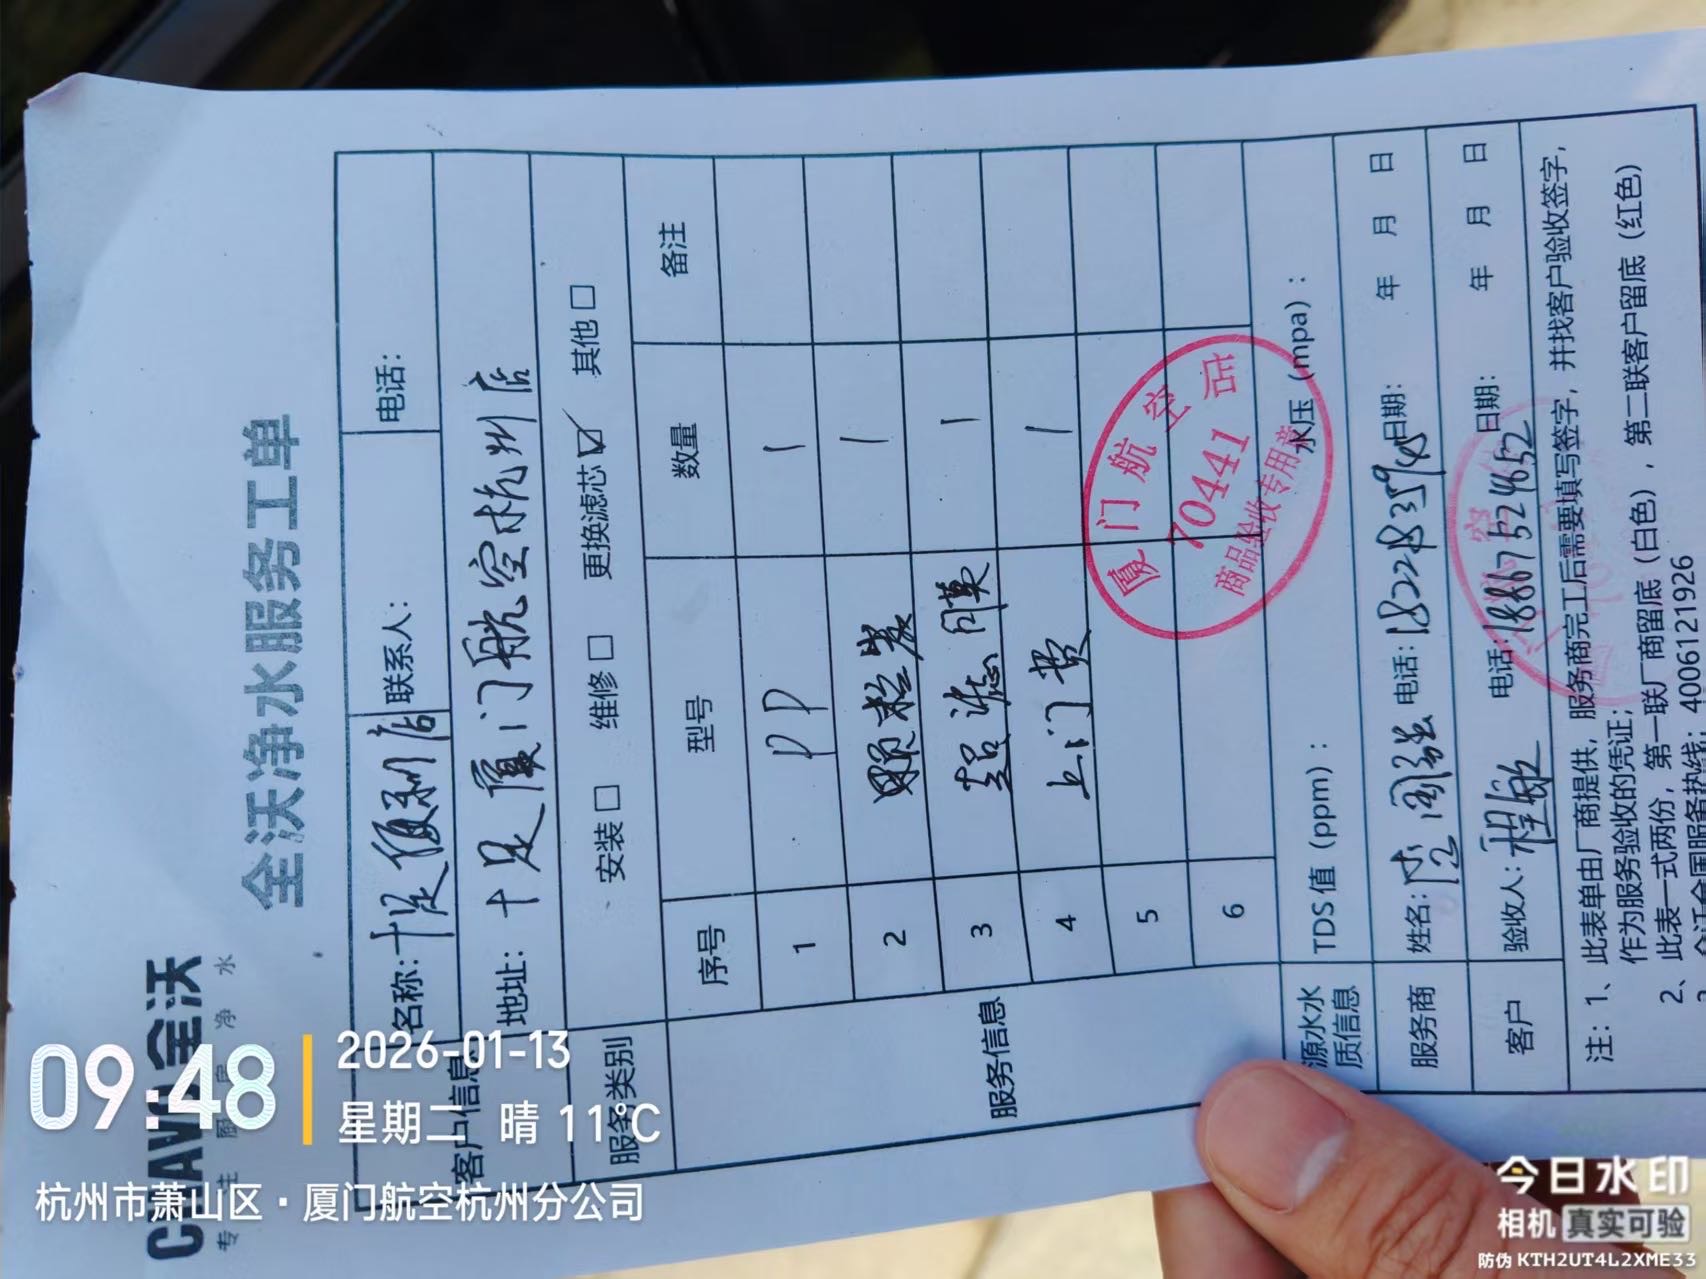 CHAVO全沃
专 主 厨 房 净 水
全沃净水服务工单
客户信息 名称：十足便利店 联系人： 电话：
地址：十足厦门航空杭州店
服务类别 安装□ 维修□ 更换滤芯☑ 其他□
服务信息 序号 型号 数量 备注
1 PP 1
2 颗粒炭 1
3 超滤膜 1
4 上门费 1
5
6
厦门航空店
70441
商品验收专用章
源水水质信息 TDS值（ppm）： 水压（mpa）：
服务商 姓名： 电话： 日期： 年 月 日
客户 验收人：程敏 电话：18867524652 日期： 年 月 日
注：1、此表单由厂商提供，服务商完工后需要填写签字，并找客户验收签字，
作为服务验收的凭证；
2、此表一式两份，第一联厂商留底（白色），第二联客户留底（红色）
3、全沃全国服务热线：4006121926
09:48
2026-01-13
星期二 晴 11°C
杭州市萧山区·厦门航空杭州分公司
今日水印
相机 真实可验
防伪 KTH2UT4L2XME33